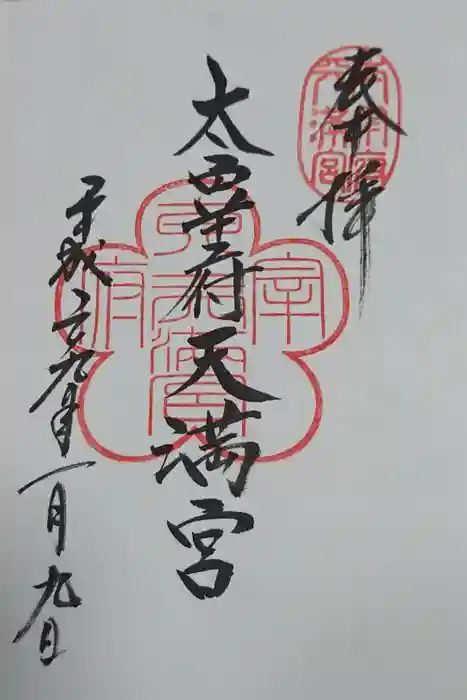 奉拝
太宰府天満宮
太宰府天満宮
平成二十九年一月九日